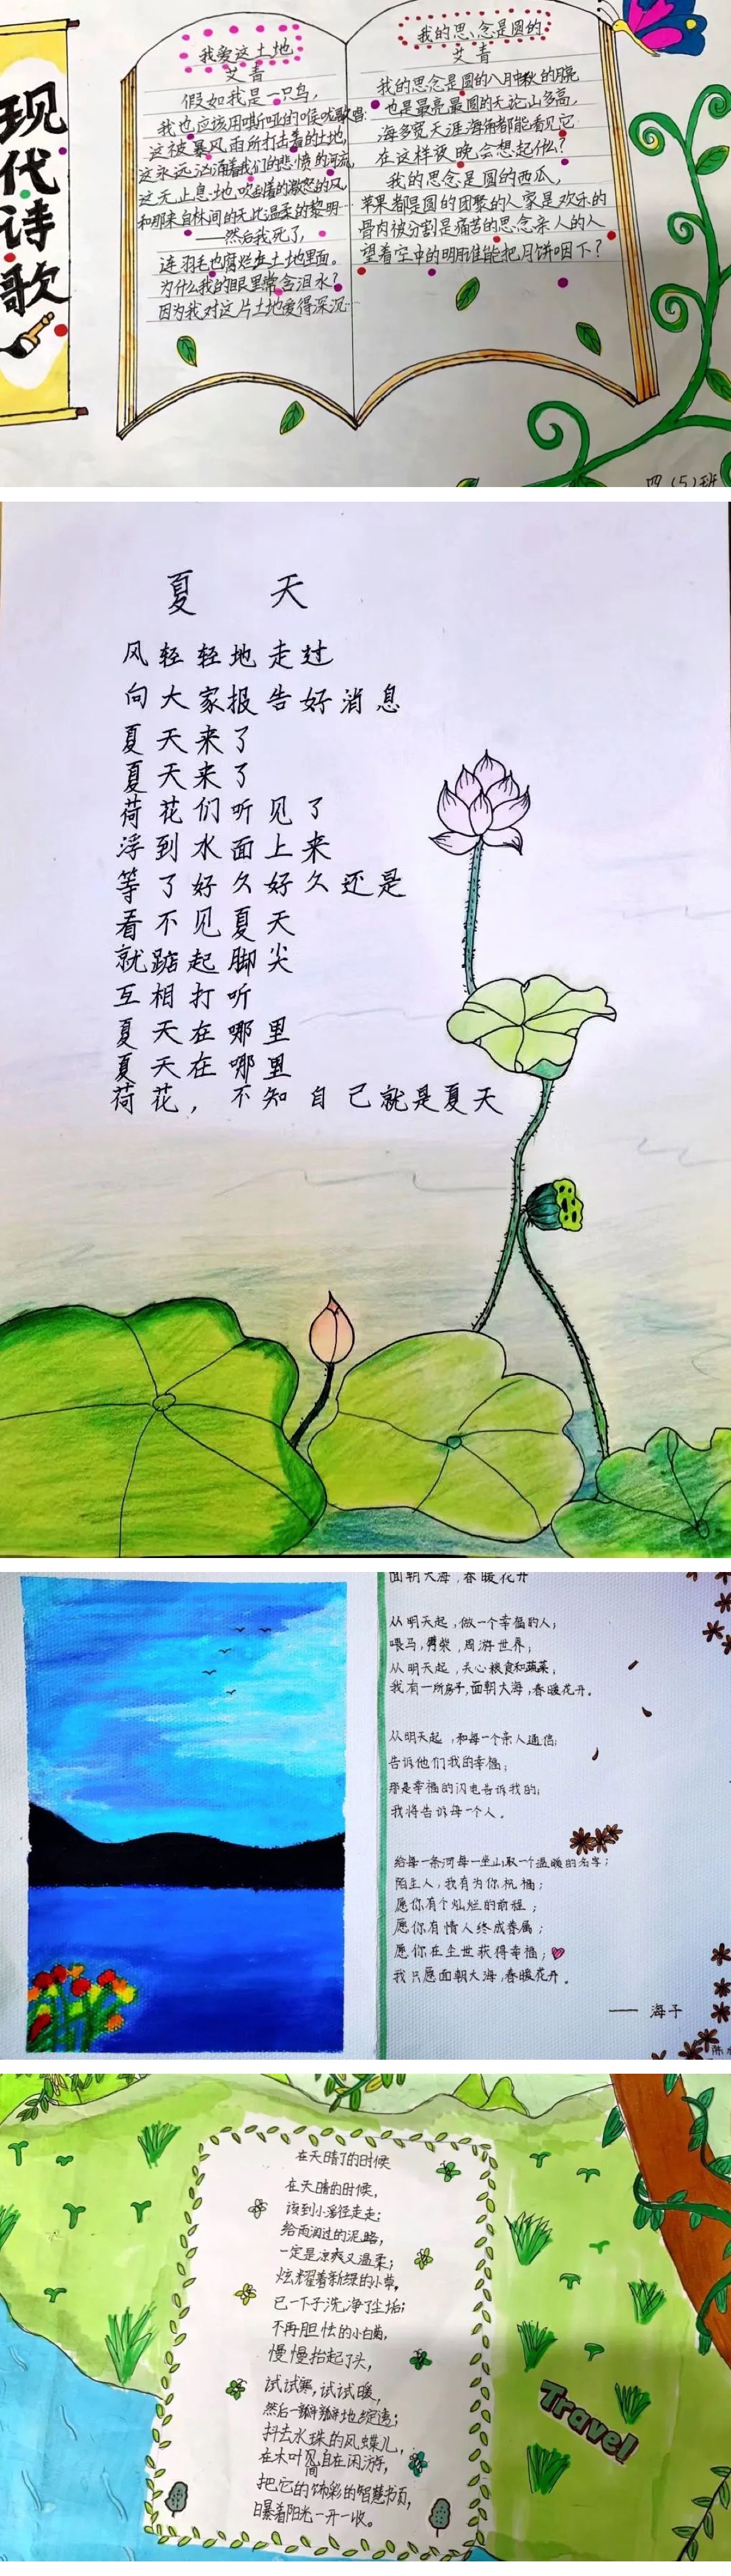 现代诗歌
我爱这土地
艾青
假如我是一只鸟，
我也应该用嘶哑的喉咙歌唱：
这被暴风雨所打击着的土地，
这永远汹涌着我们的悲愤的河流，
这无止息地吹刮着的激怒的风，
和那来自林间的无比温柔的黎明…
——然后我死了，
连羽毛也腐烂在土地里面。
为什么我的眼里常含泪水？
因为我对这片土地爱得深沉…
我的思念是圆的
艾青
我的思念是圆的八月中秋的月亮
也是最亮最圆的无论山多高，
海多宽天涯海角都能看见它
在这样夜晚会想起什么？
我的思念是圆的西瓜，
苹果都是圆的团聚的人家是欢乐的
骨肉被分割是痛苦的思念亲人的人
望着空中的明月谁能把月饼咽下？
四（5）班
夏 天
风轻轻地走过
向大家报告好消息
夏天来了
夏天来了
荷花们听见了
浮到水面上来
等了好久好久还是
看不见夏天
就踮起脚尖
互相打听
夏天在哪里
夏天在哪里
荷花，不知自己就是夏天
面朝大海，春暖花开
从明天起，做一个幸福的人；
喂马，劈柴，周游世界；
从明天起，关心粮食和蔬菜，
我有一所房子，面朝大海，春暖花开。
从明天起，和每一个亲人通信；
告诉他们我的幸福；
那是幸福的闪电告诉我的；
我将告诉每一个人。
给每一条河每一座山取一个温暖的名字；
陌生人，我有为你祝福；
愿你有个灿烂的前程；
愿你有情人终成眷属；
愿你在尘世获得幸福；
我只愿面朝大海，春暖花开。
—— 海子
陈
在天晴了的时候
在天晴的时候，
该到小径走走：
给雨润过的泥路，
一定是凉爽又温柔；
炫耀着新绿的小草，
已一下子洗净了尘垢；
不再胆怯的小白菊，
慢慢抬起了头，
试试寒，试试暖，
然后一瓣瓣地绽透；
抖去水珠的凤蝶儿，
在木叶间自在闲游，
把它的饰彩的智慧书页，
曝着阳光一开一收。
Travel